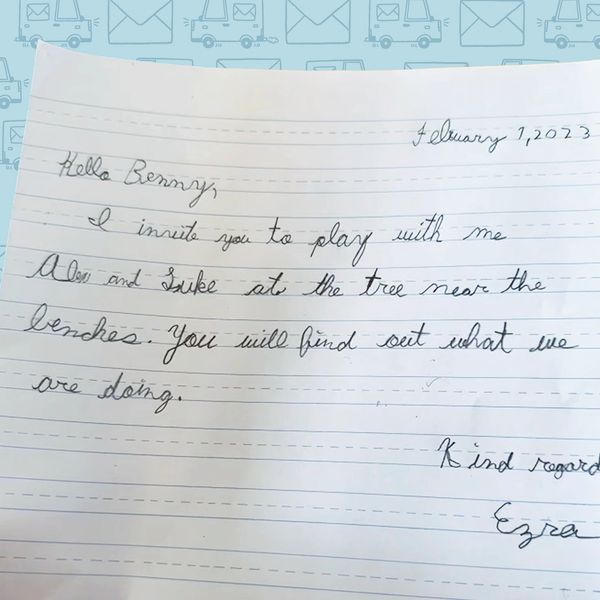 February 1, 2023
Hello Benny,
I invite you to play with me
Alex and Luke at the tree near the
benches. You will find out what we
are doing.
Kind regard
Ezra